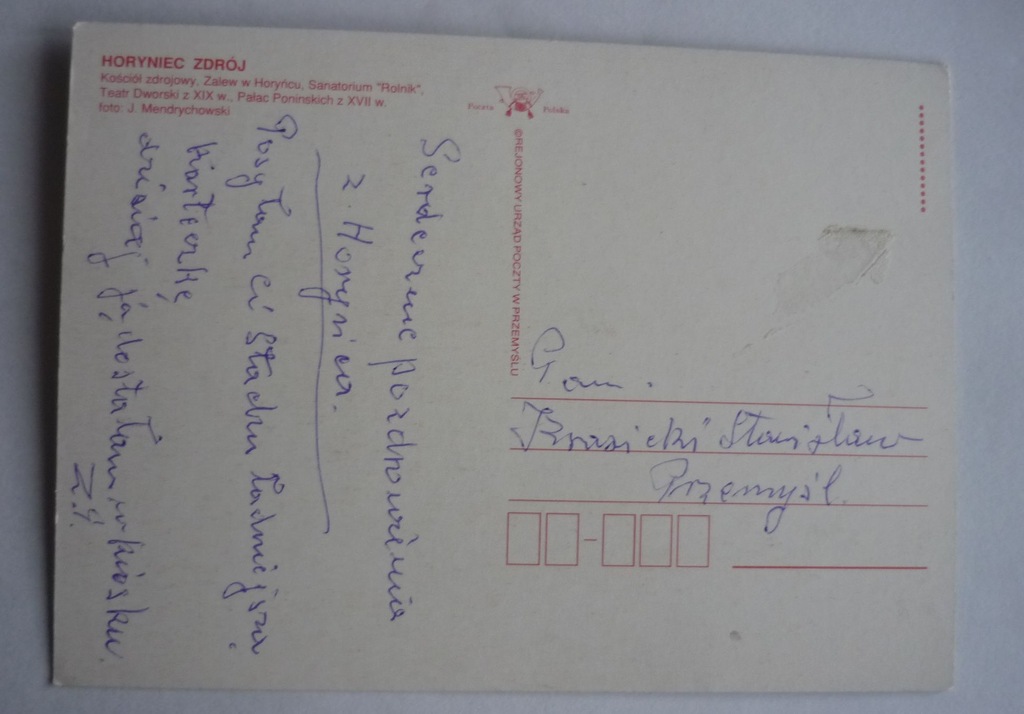 HORYNIEC ZDRÓJ
Kościół zdrojowy, Zalew w Horyńcu, Sanatorium "Rolnik",
Teatr Dworski z XIX w., Pałac Poninskich z XVII w.
foto: J. Mendrychowski
Poczta Polska
©REJONOWY URZĄD POCZTY W PRZEMYŚLU
Serdeczne pozdrowienia
z Horyńca.
Posyłam Ci Stachu ładniejszą
karteczkę
dzisiaj ją dostałam w kiosku.
Z.
Pan.
Krasicki Stanisław
Przemyśl.